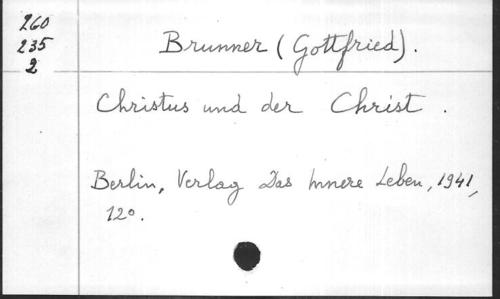 260
235
2
Brunner (Gottfried).
Christus und der Christ.
Berlin, Verlag Das Innere Leben, 1941,
12°.